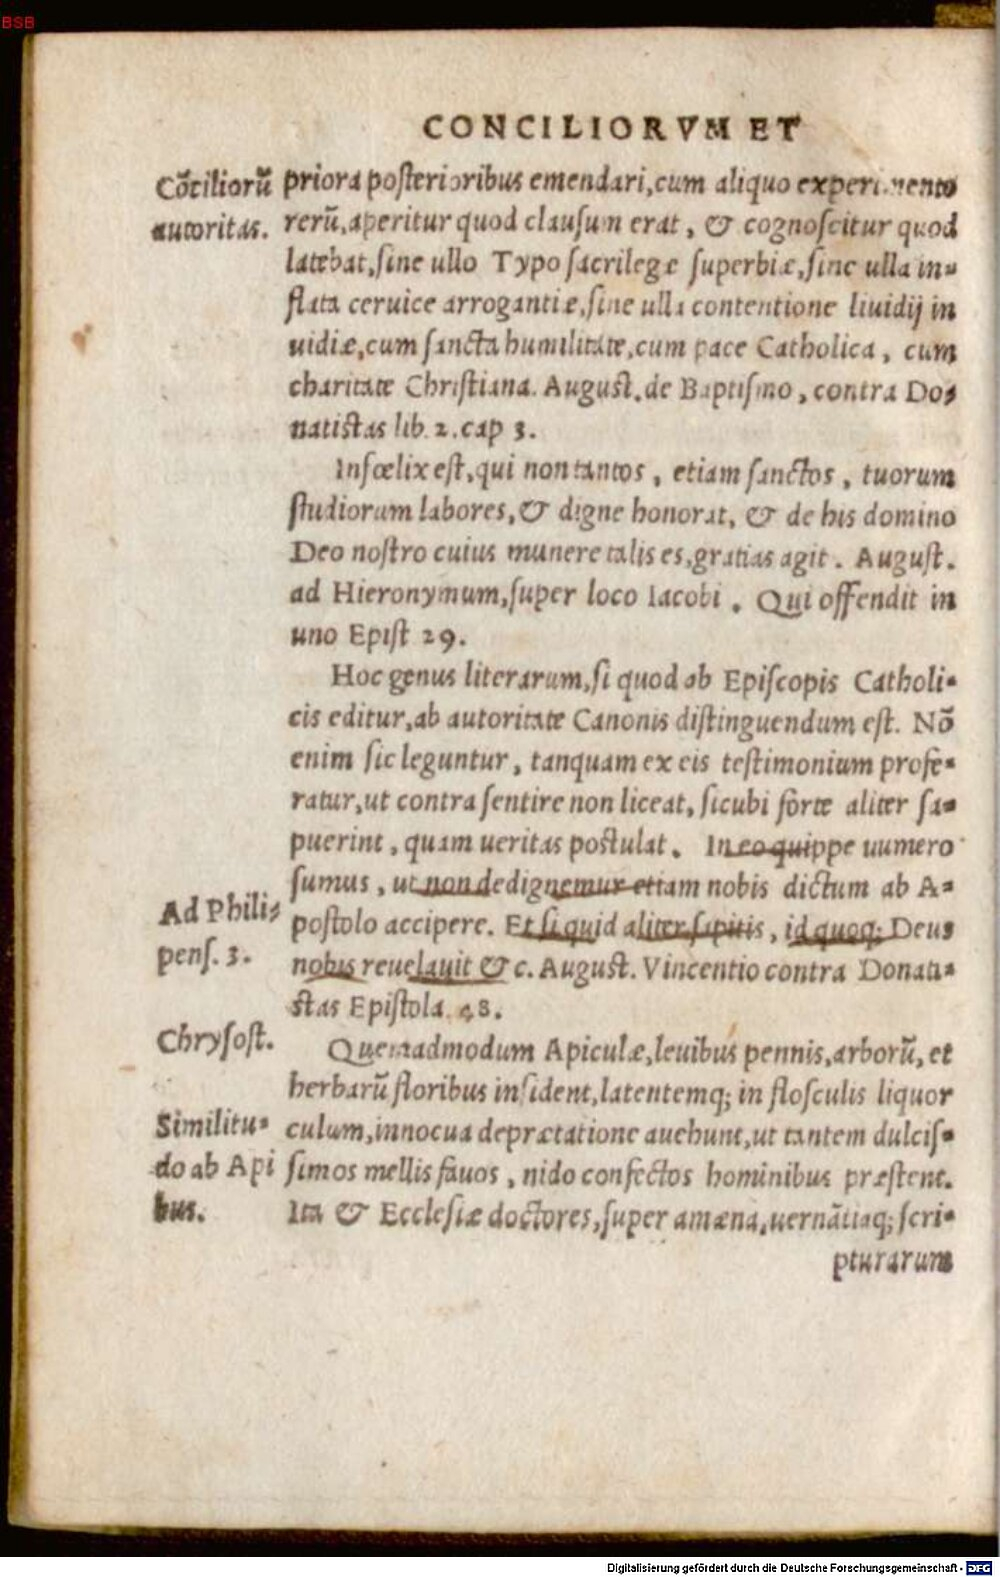 BSB
CONCILIORVM ET
Cõciliorũ
autoritas.
priora posterioribus emendari, cum aliquo experimento
rerũ, aperitur quod clausum erat, & cognoscitur quod
latebat, sine ullo Typo sacrilegæ superbiæ, sine ulla in-
flata ceruice arrogantiæ, sine ulla contentione liuidij in
uidiæ, cum sancta humilitate, cum pace Catholica, cum
charitate Christiana. August. de Baptismo, contra Do-
natistas lib. 2. cap 3.
Infœlix est, qui non tantos, etiam sanctos, tuorum
studiorum labores, & digne honorat, & de his domino
Deo nostro cuius munere talis es, gratias agit. August.
ad Hieronymum, super loco Iacobi. Qui offendit in
uno Epist 29.
Hoc genus literarum, si quod ab Episcopis Catholi-
cis editur, ab autoritate Canonis distinguendum est. Nõ
enim sic leguntur, tanquam ex eis testimonium profe-
ratur, ut contra sentire non liceat, sicubi forte aliter sa-
puerint, quam ueritas postulat. In eo quippe uumero
sumus, ut non dedignemur etiam nobis dictum ab A-
Ad Phili-
pens. 3.
postolo accipere. Et si quid aliter sapitis, id quoq; Deus
nobis reuelauit & c. August. Vincentio contra Donati-
stas Epistola 48.
Chrysost.
Quemadmodum Apiculæ, leuibus pennis, arborũ, et
herbarũ floribus insident, latentemq; in flosculis liquor
Similitu-
do ab Api
bus.
culum, innocua deprætatione auehunt, ut tantem dulcis-
simos mellis fauos, nido confectos hominibus præstent.
Ita & Ecclesiæ doctores, super amæna, uernãtiaq; scri-
pturarum
Digitalisierung gefördert durch die Deutsche Forschungsgemeinschaft - DFG